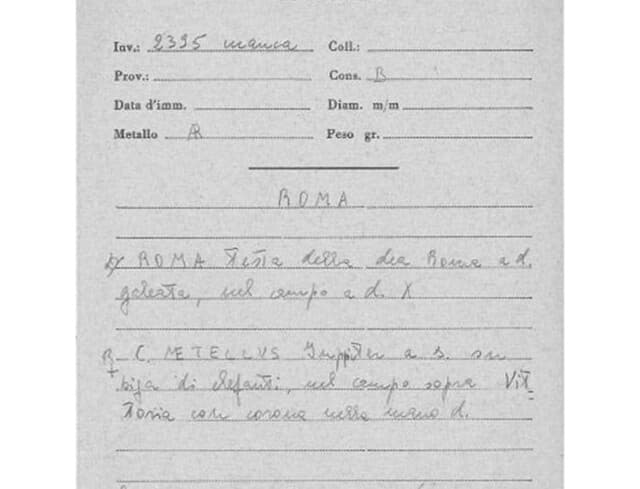 Inv.: 2395 manca Coll.:
Prov.: Cons. B
Data d'imm. Diam. m/m
Metallo AR Peso gr.
ROMA
D/ ROMA Testa della dea Roma a d.
galeata, nel campo a d. X
R C. METELLVS Juppiter a s. su
biga di elefanti, nel campo sopra Vit=
toria con corona nella mano d.